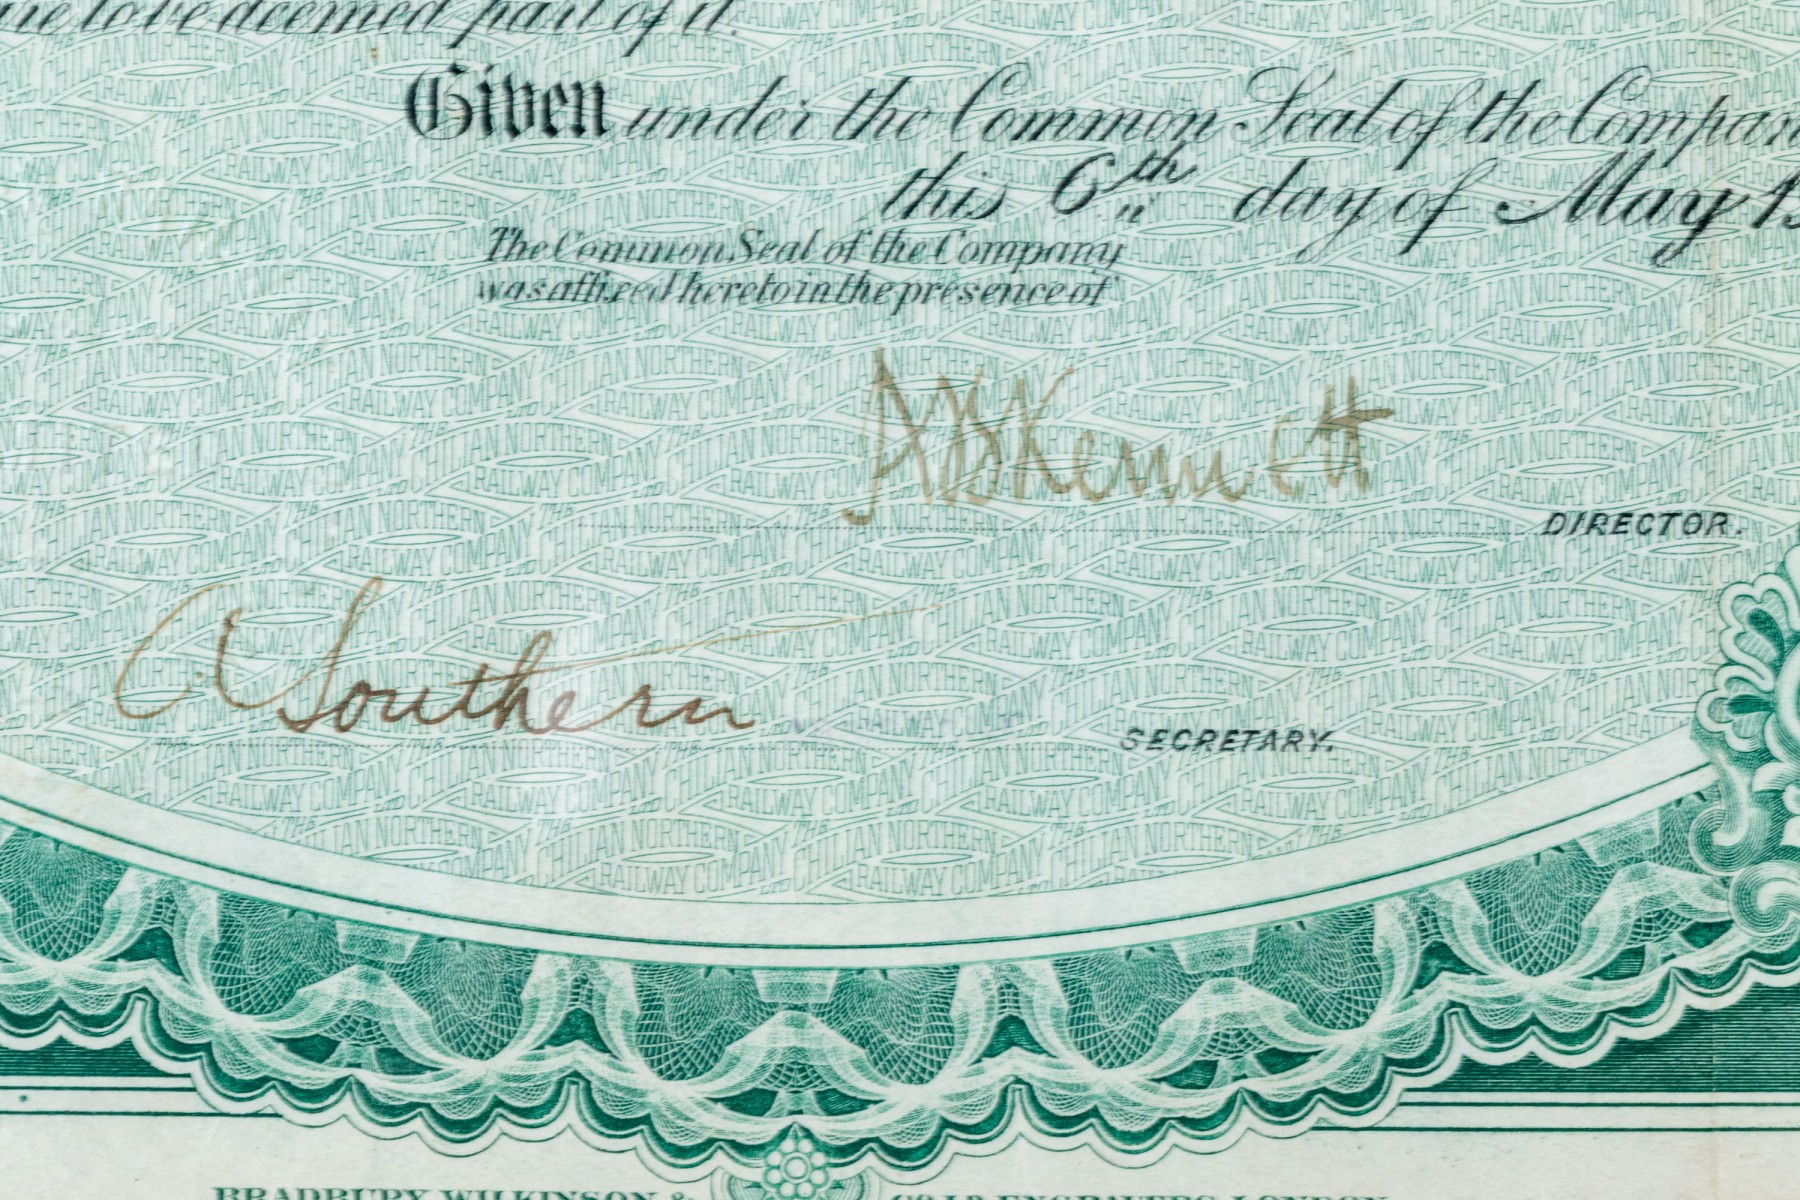 to be deemed part of it.
Given under the Common Seal of the Company
this 6th day of May 19
The Common Seal of the Company
was affixed hereto in the presence of
A B Kennett
DIRECTOR.
A Southern
SECRETARY.
BRADBURY WILKINSON & Co Ld ENGRAVERS LONDON